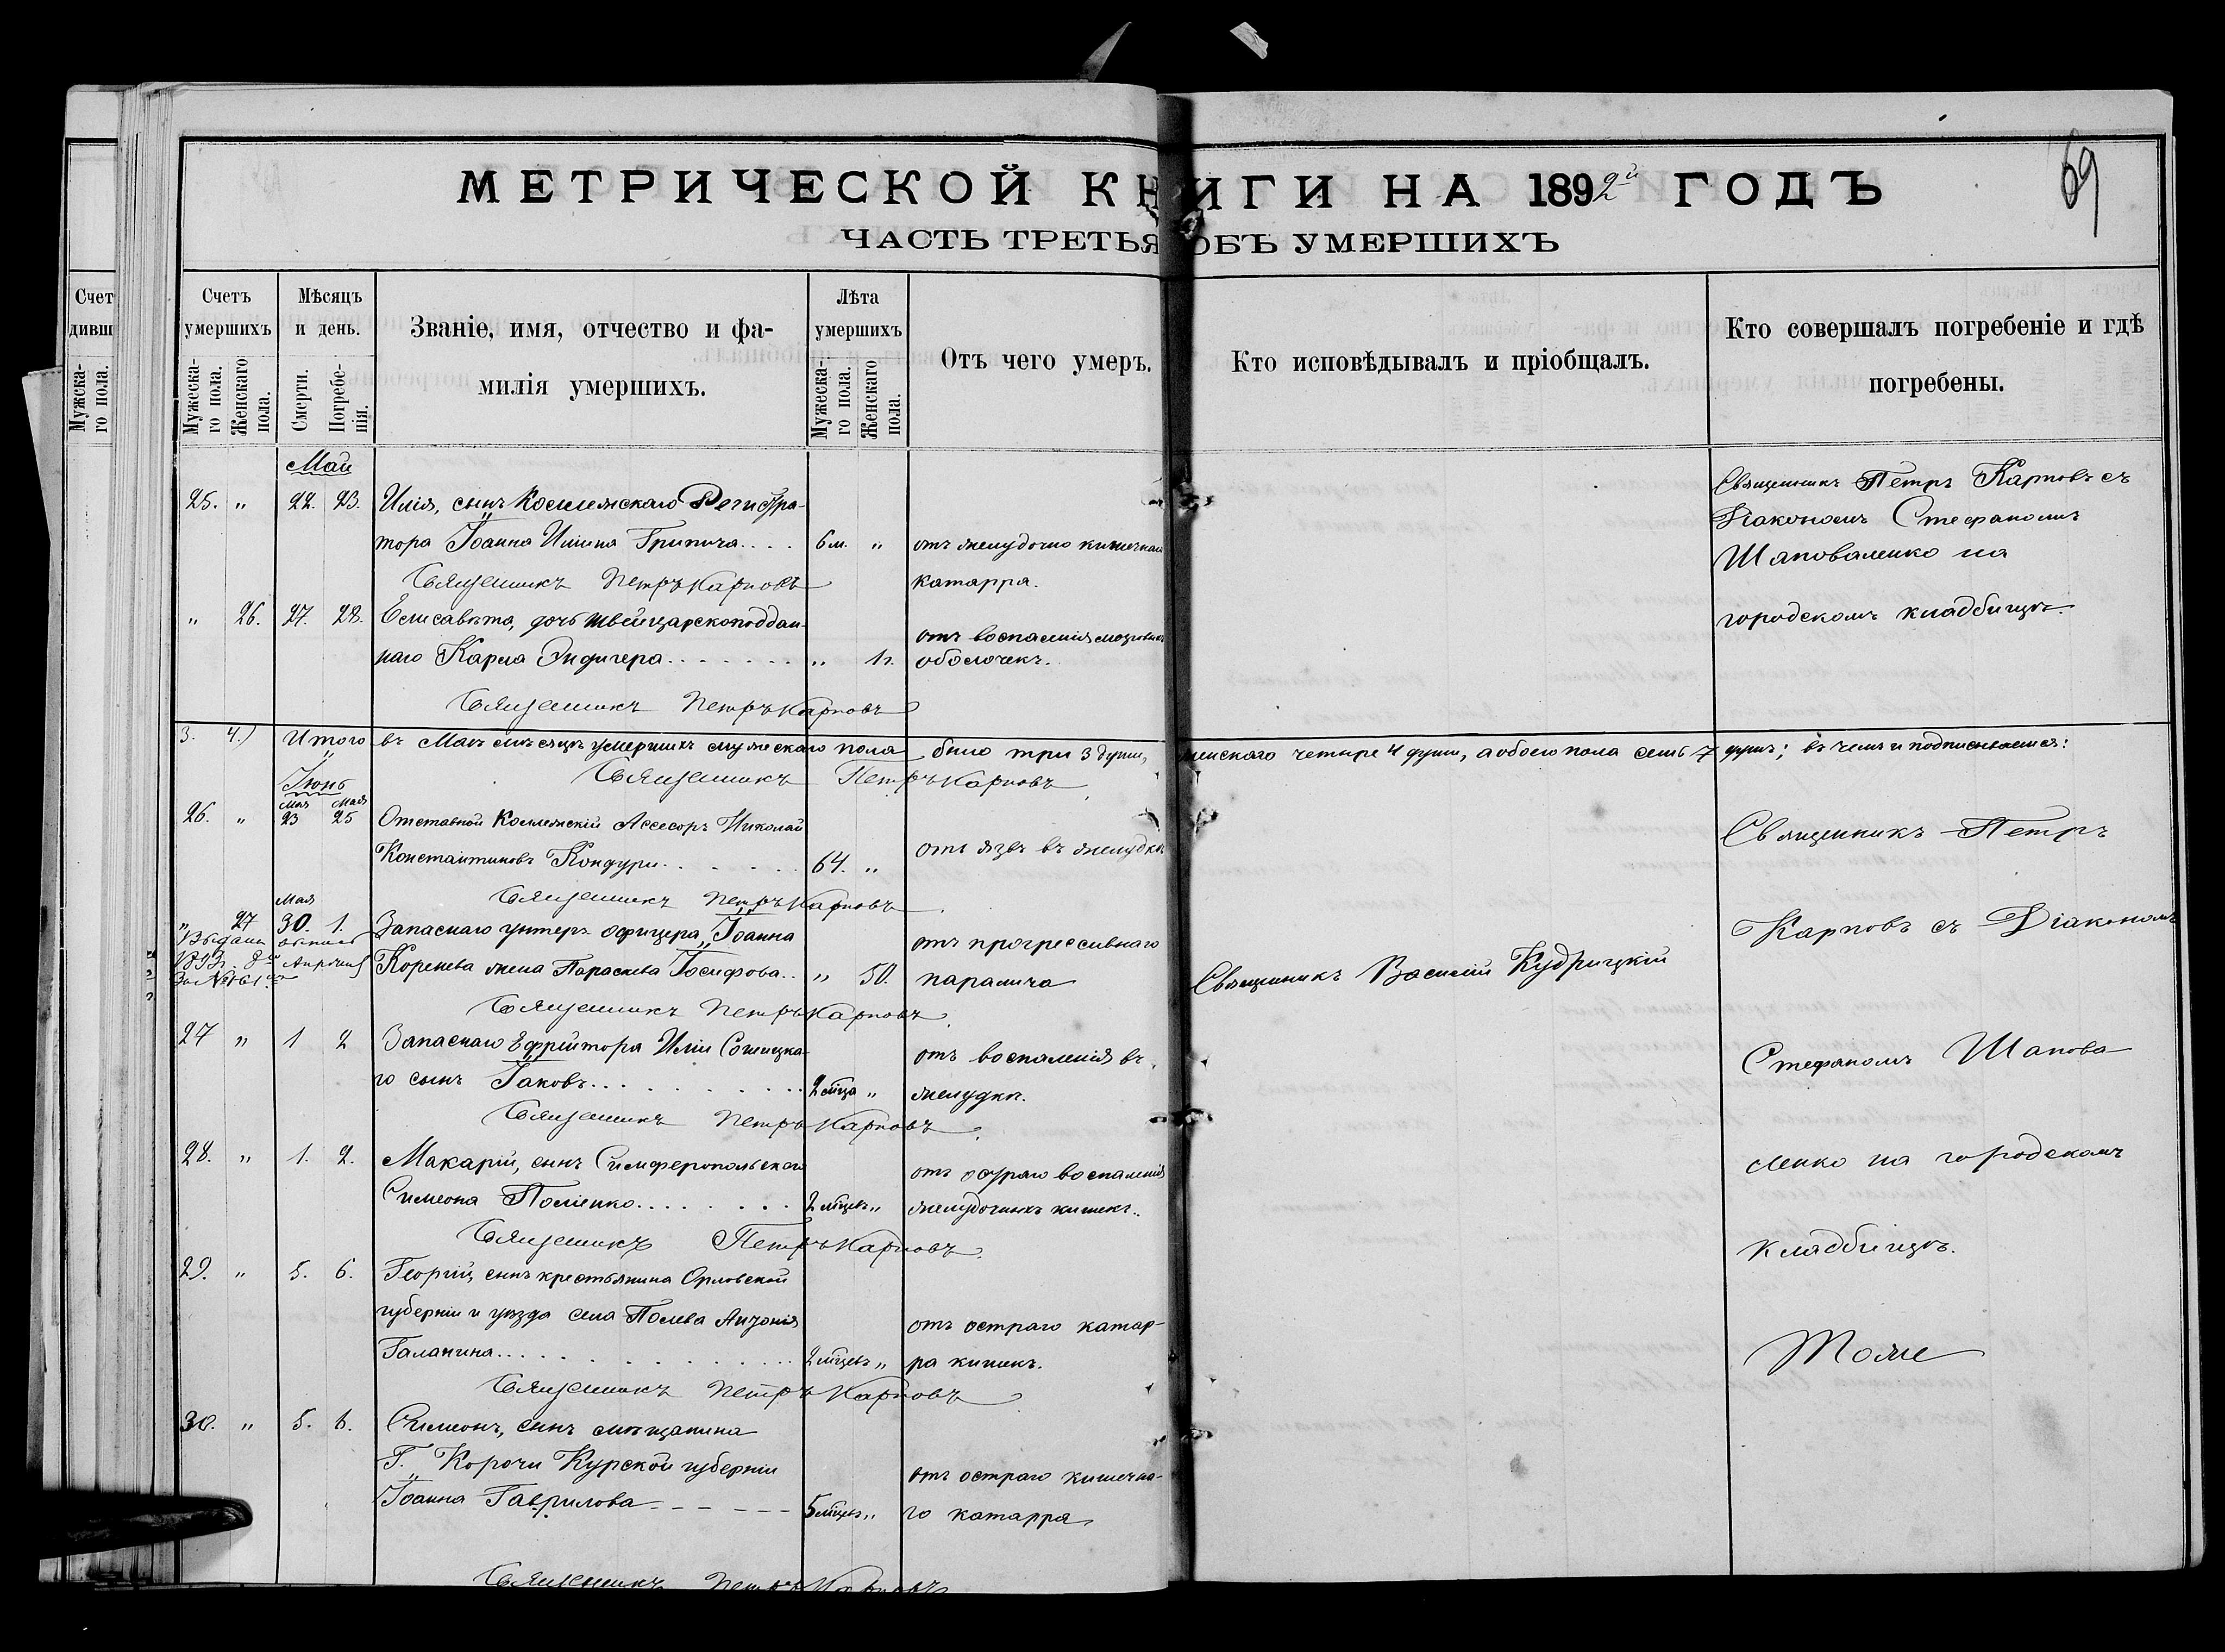 МЕТРИЧЕСКОЙ КНИГИ НА 1892й ГОДЪ
69
ЧАСТЬ ТРЕТЬЯ ОБЪ УМЕРШИХЪ
Счет
дивш
Мужеска-
го пола.
Счетъ
умершихъ
Мужеска-
го пола.
Женскаго
пола.
Мѣсяцъ
и день.
Смерти.
Погребе-
нія.
Званіе, имя, отчество и фа-
милія умершихъ.
Лѣта
умершихъ
Мужеска-
го пола.
Женскаго
пола.
Отъ чего умеръ.
Кто исповѣдывалъ и пріобщалъ.
Кто совершалъ погребеніе и гдѣ
погребены.
Май
25. „ 22. 23. Илія, сынъ Коллежскаго Регистра-
тора Іоанна Иліина Грипича.... 6 м. „ отъ желудочно кишечнаго
катарра.
Священникъ Петръ Карповъ
Священникъ Петръ Карповъ съ
Діакономъ Стефаномъ
Шаповаленко на
городскомъ кладбищѣ.
„ 26. 27. 28. Елисавета, дочь швейцарскоподдан-
наго Карла Эндигера....... „ 1 г. отъ воспаленія мозговыхъ
оболочекъ.
Священникъ Петръ Карповъ
3. 4.) Итого въ Маѣ мѣсяцѣ умершихъ мужескаго пола было три 3 души, женскаго четыре 4 души, а обоего пола семь 7 душъ; въ чемъ и подписываемся:
Священникъ Петръ Карповъ
Іюнь
Мая Мая
26. „ 23 25 Отставной Коллежскій Ассесоръ Николай
Константиновъ Кондури...... 64. „ отъ язвъ въ желудкѣ
Священникъ Петръ Карповъ
Мая
„ 27 30. 1. Запаснаго унтеръ офицера Іоанна
Коренева жена Параскева Іосифова.. „ 50. отъ прогрессивнаго
паралича
Священникъ Василій Кудрицкій
Священникъ Петръ Карповъ
27 „ 1 2 Запаснаго Ефрейтора Иліи
го сынъ Іаковъ........ 2 мца „ отъ воспаленія въ
желудкѣ.
Священникъ Петръ Карповъ
28. „ 1. 2. Макарій, сынъ Симферопольскаго
Симеона Поліенко........ 2 мцевъ „ отъ остраго воспаленія
желудочныхъ кишекъ.
Священникъ Петръ Карповъ
29. „ 5. 6. Георгій, сынъ крестьянина Орловской
губерніи и уѣзда села Полева Антонія
Галанина........ 2 мцевъ „ отъ остраго катар-
ра кишекъ.
Священникъ Петръ Карповъ
30. „ 5. 6. Симеонъ, сынъ мѣщанина
Г. Корочи Курской губерніи
Іоанна Гаврилова 5 мцевъ „ отъ остраго кишечна-
го катарра
Священникъ Петръ Карповъ
Священникъ Петръ
Карповъ съ Діакономъ
Стефаномъ Шапова
ленко на городскомъ
кладбищѣ.
Тоже